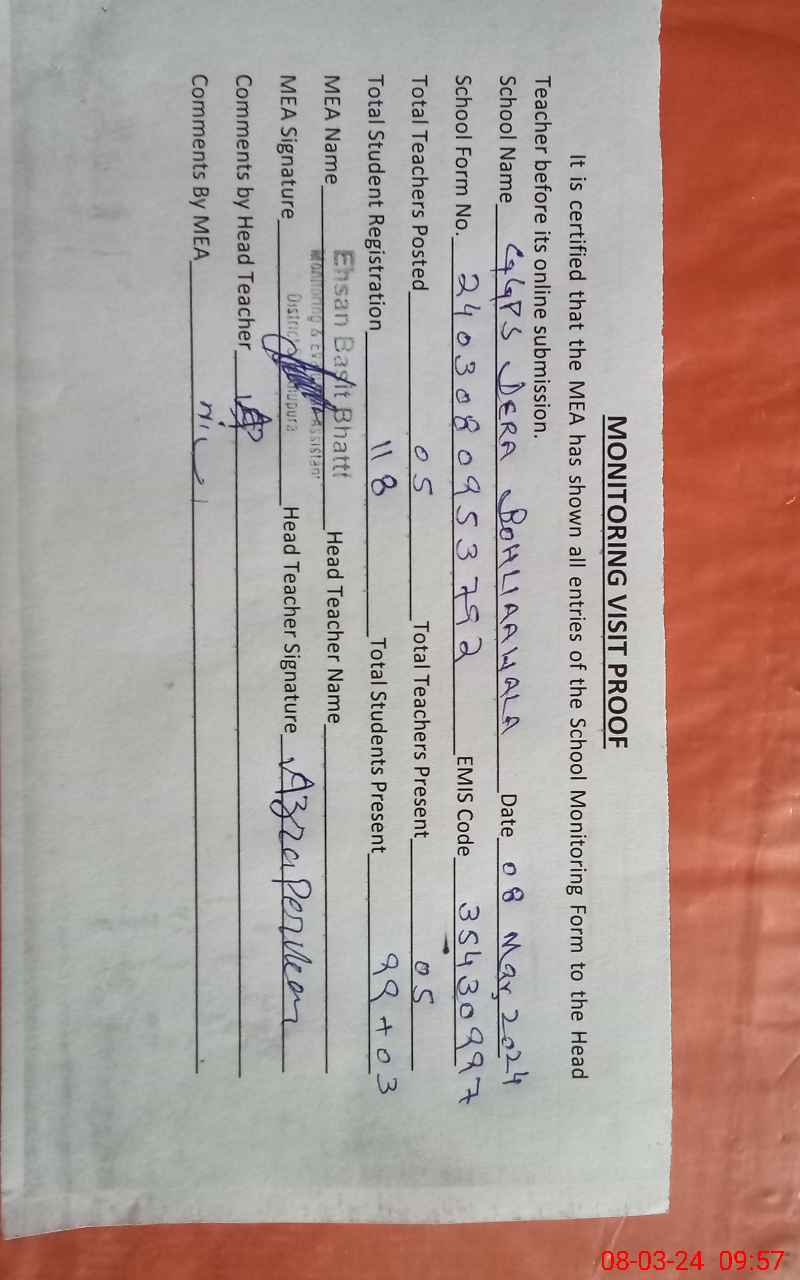 MONITORING VISIT PROOF
It is certified that the MEA has shown all entries of the School Monitoring Form to the Head
Teacher before its online submission.
School Name GGPS DERA BOHLIAAWALA Date 08 Mar, 2024
School Form No. 2403080953792 EMIS Code 35430997
Total Teachers Posted 05 Total Teachers Present 05
Total Student Registration 118 Total Students Present 99+03
Ehsan Basit Bhatti
MEA Name Head Teacher Name
Monitoring & Assistant
District
MEA Signature Head Teacher Signature Azra Perveen
Comments by Head Teacher
Comments By MEA Nil
08-03-24 09:57